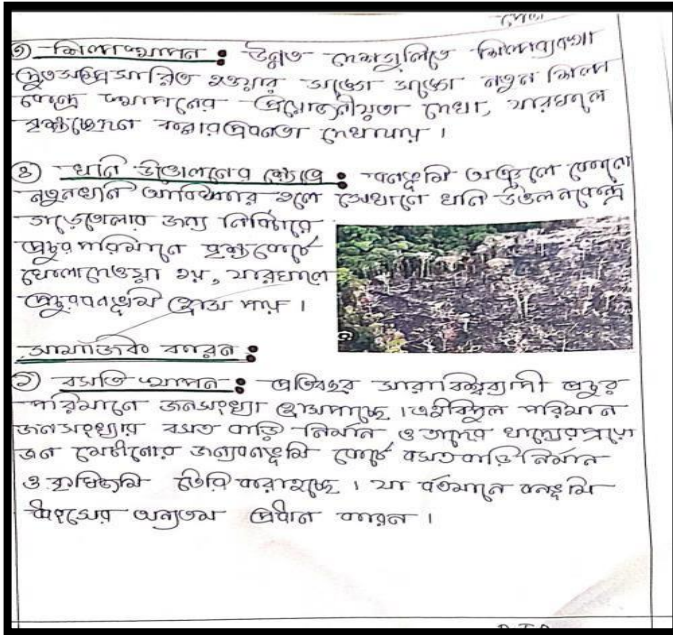 দেয়।
৩) শিল্প স্থাপন : উন্নত দেশগুলিতে শিল্পব্যবস্থা
দ্রুত সম্প্রসারিত হওয়ার সঙ্গে সঙ্গে নতুন শিল্প
কেন্দ্র স্থাপনের প্রয়োজনীয়তা দেখা, যারফলে
বৃক্ষচ্ছেদন করার প্রবনতা দেখাযায় ।
৪) খনি উত্তোলনের ক্ষেত্রে : বনভূমি অঞ্চলে কোনো
নতুনখনি আবিষ্কার হলে সেখানে খনি উত্তলনকেন্দ্র
গড়েতোলার জন্য নির্বিচারে
প্রচুর পরিমানে বৃক্ষকেটে
ফেলাদেওয়া হয়, যারফলে
প্রচুরবনভূমি হ্রাস পায় ।
সামাজিক কারন :
১) বসতি স্থাপন : প্রতিবছর সারাবিশ্বব্যাপী প্রচুর
পরিমানে জনসংখ্যা হ্রাসপাচ্ছে । এইবিপুল পরিমান
জনসংখ্যার বসত বাড়ি নির্মান ও তাদের খাদ্যেরপ্রয়ো
জন মেটানোর জন্যবনভূমি কেটে বসতবাড়ি নির্মান
ও কৃষিজমি তৈরি করাহচ্ছে । যা বর্তমানে বনভূমি
ধ্বংসের অন্যতম প্রধান কারন ।
P.T.O